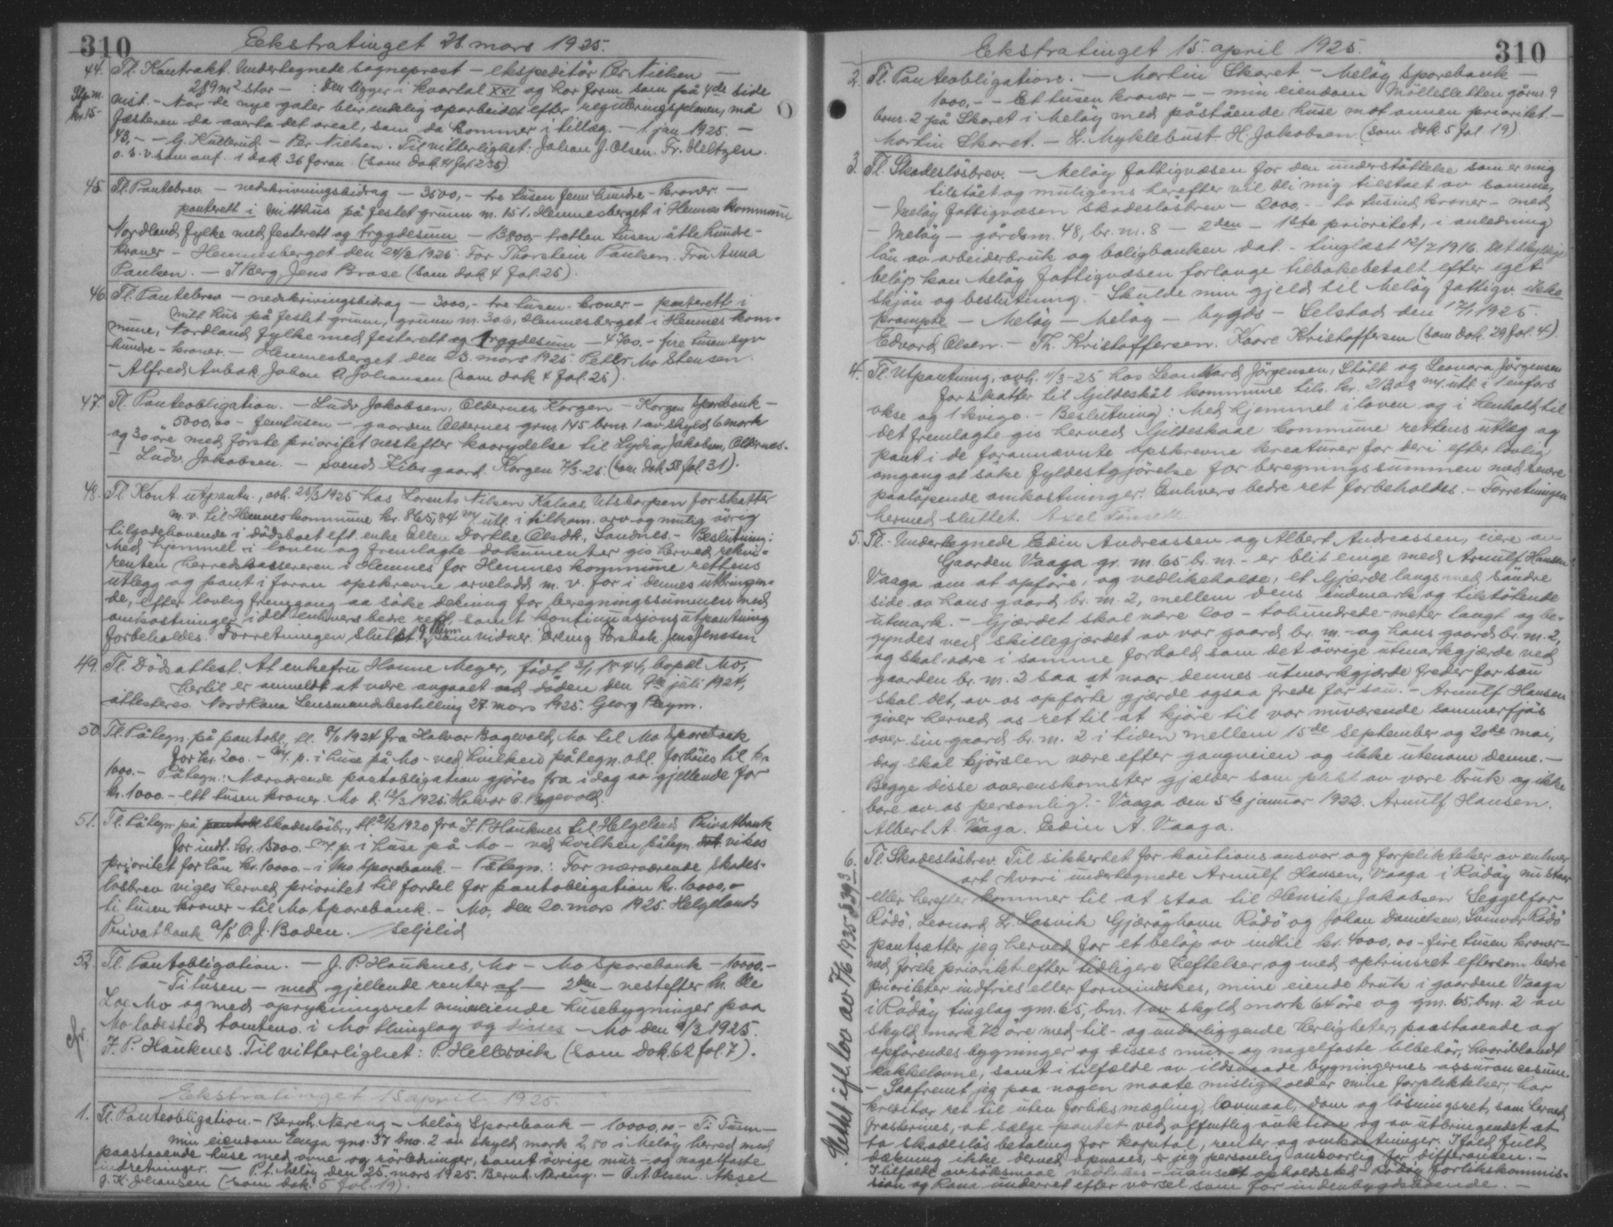 310
Ekstratinget 28 mars 1925.
44. Tl. Kontrakt. Undertegnede sogneprest – ekspeditör Per Nielsen –
289 m² stor – : Den ligger i kvartal XXI og har form som på 4de side
vist. – Når de nye gater blir endelig oparbeidet efter reguleringsplanen, må
fæsteren da avstå det areal, som da kommer i tillæg. – 1 jan 1925. –
43,– – G. Kullerud – Per Nielsen. Til vitterlighet: Johan J. Olsen. Fr. Heltzen.
o.s.v. som anf. i dok 36 foran. (som dok 4 fol 235)
45. Tl. Pantebrev – nedskrivningsbidrag – 3500,– tre tusen fem hundre – kroner –
panterett i mitt hus på festet grunn m. 151. Hemnesberget i Hemnes kommune
Nordland fylke med festerett og trygdesum – 13800,– tretten tusen åtte hundre –
kroner – Hemnesberget den 24/2 1925. For Thorstein Paulsen. Fru Anna
Paulsen. – I Berg. Jens Brase (som dok 4 fol. 25).
46. Tl. Pantebrev – nedskrivningsbidrag – 3000,– tre tusen – kroner – panterett i
mitt hus på festet grunn, grunn m. 306, Hemnesberget i Hemnes kom-
mune, Nordland fylke med festerett og trygdesum – 4700.– fire tusen syv
hundre – kroner. – Hemnesberget den 3. mars 1925. Petter Mo Stensen.
– Alfred Aubak Johan A Johansen (som dok 4 fol. 25).
47. Tl. Panteobligation. – Ludv. Jakobsen, Oldernes Korgen – Korgen Sparebank –
5000,00 – femtusen – gaarden Oldernes grnr. 145 brnr. 1 av skyld 6 mark
og 30 øre med förste prioritet nestefter kaarydelse til Lydia Jakobsen, Oldernes.
– Ludv. Jakobsen. – Svend Kibsgaard. Korgen 7/3-25 (som dok 58 fol 31).
48. Tl. Kont. utpantn., avh. 20/3 1925 hos Lorents Nilsen Kalaas Utskarpen for skatter
m.v. til Hemnes kommune kr. 865,84 utl. i tilkom. arv og mulig övrig
tilgodehavende i dödsboet eft. enke Ellen Dorthe Olsdt., Sandnes. – Beslutning:
Med hjemmel i loven og fremlagte dokumenter gis herved rekvi-
renten herredskassereren i Hemnes for Hemnes kommune rettens
utlegg og pant i foran opskrevne arvelodd m.v. for i dennes utbringen-
de, efter lovlig fremgang aa söke dekning for beregningssummen med
omkostninger idet enhvers bedre rett, samt kontinuasjonsutpantning
forbeholdes. Forretningen sluttet. G. Thum Som vidner: Erling Forsbak. Jens Jenssen
49. Tl. Dödsattest. At enkefru Hanne Meyer, födt 3/1 1844, bopæl Mo,
hertil er anmeldt at være avgaaet ved döden den 9de juli 1924,
attesteres. Nordrana Lensmandsbestilling 27. mars 1925. Georg Beym.
50. Tl. Påtegn. på pantobl. tl. 8/10 1924 fra Halvor Bogevold, Mo til Mo Sparebank
for kr. 200.– p. i huse på Mo – ved hvilken påtegn. obl. forhöies til kr.
1000.– Påtegn.: Nærværende pantobligation gjöres fra idag av gjellende for
kr. 1000 – ett tusen kroner. Mo d. 12/3 1925. Halvor C. Bogevold.
51. Tl. Påtegn på Skadeslösbr., tl. 21/2 1920 fra J. P. Hauknes til Helgelands Privatbank
for indt. kr. 15000.– p. i huse på Mo – ved hvilken påtegn. vikes
prioritet for lån kr. 10000.– i Mo Sparebank – Påtegn.: For nærværende skades-
lösbrev viges herved prioritet til fordel for pantobligation kr. 10000,–
ti tusen kroner – til Mo Sparebank. – Mo, den 20. mars 1925. Helgelands
Privatbank A/S O. J. Boden. Seljelid
52. Tl. Pantobligation. – J. P. Hauknes, Mo – Mo Sparebank – 10000.–
– Ti tusen – med gjellende renter af – 2den – nestefter hr. Ole
Loe Mo og med oprykningsret mine eiende husebygninger paa
Mo ladested, tomteno. i Mo thinglag og disses – Mo den 9/3 1925.
J. P. Hauknes. Til vitterlighet: P. Hellesvik (som Dok 62 fol. 7).
Ekstratinget 15 april 1925.
1. Tl. Panteobligation – Bernh. Nereng – Melöy Sparebank – 10000,00 – Ti Tusen –
min eiendom Enga gno. 37 bno. 2 av skyld mark 2,50 i Melöy herred med
paastaaende huse med ovne og rörledninger, samt övrige mur- og nagelfaste
indretninger. – P.t. Melöy den 25 mars 1925. Bernh. Nereng. – O. A. Olsen. Aksel
J. K. Johansen (som dok. 5 fol. 19).
Ekstratinget 15 april 1925.
310
2. Tl. Panteobligation. – Martin Skoret. – Meløy Sparebank –
1000,– – Et tusen kroner – – min eiendom Møllesletten gårns. 9
brns. 2 på Skoret i Meløy med påstående huse mot annen prioritet –
Martin Skoret. – L. Myklebust. H. Jakobsen (som dok. 5 fol. 19)
3. Tl. Skadeslösbrev. – Meløy fattigvæsen for den understøttelse som er mig
tilstået og muligens herefter vil bli mig tilstået av samme,
– Meløy fattigvæsen skadesløsbrev – 2000,– – to tusind kroner – med
– Meløy – gårdsnr. 48, br. nr. 8 – 2den – 1ste prioritet, i anledning
lån av arbeiderbruk og boligbanken dat. – tinglæst 12/7 1916. Det skyldige
beløp kan Meløy fattigvæsen forlange tilbakebetalt efter eget
skjön og beslutning. – Skulde min gjeld til Meløy fattigv. ikke
prompte – Meløy – Meløy – bygds – Selstad den 17/1 1925.
Edvard Olsen. – Th. Kristoffersen. Kaare Kristoffersen (som dok. 29 fol. 4).
4. Tl. Utpantning, avh. 11/3-25 hos Leonhard Jörgensen, Stött og Leonora Jörgensen
for skatter til Gildeskål kommune tils. kr. utl. i 1 einfors
okse og 1 kvige. – Beslutning: Med hjemmel i loven og i henhold til
det fremlagte gis herved Gildeskaal kommune rettens utlæg og
pant i de forannævnte opskrevne kreaturer for deri efter lovlig
omgang at søke fyldestgjørelse for beregningssummen med senere
paalöpende omkostninger. Enhvers bedre ret forbeholdes. – Forretningen
hermed sluttet. Axel
5. Tl. – Undertegnede Edin Andreassen og Albert Andreassen, eiere av
Gaarden Vaaga gr. nr. 65 br. nr. – er blit enige med Arnulf Hansen
Vaaga om at opføre, og vedlikeholde, et Gjærde langs med søndre
side av hans gaard br. nr. 2, mellem dens indmark og tilstötende
utmark. – Gjærdet skal være 200 – tohundrede – meter langt og be-
gyndes ved skillegjærdet av vor gaard br. nr. – og hans gaard br. nr. 2,
og skal være i samme forhold som det øvrige utmarkgjærde ved
gaarden br. nr. 2 saa at naar dennes utmarkgjærde freder for sau
skal det, av os opførte gjærde ogsaa frede for sau. – Arnulf Hansen
giver herved os ret til at kjøre til vor nuværende sommerfjøs
over sin gaard br. nr. 2 i tiden mellem 15de september og 20de mai,
dog skal kjørslen være efter gangveien og ikke utenom denne. –
Begge disse overenskomster gjælder som pligt av vore bruk og ikke
bare av os personlig. – Vaaga den 5te januar 1922. Arnulf Hansen.
Albert A. Vaaga. Edin A. Vaaga.
6. Tl. Skadesløsbrev. Til sikkerhet for kautionsansvar og forpliktelser av enhver
art hvori undertegnede Arnulf Hansen, Vaaga i Rødøy nu staar
eller herefter kommer til at staa til Henrik Jakobsen Seggelfor
Rödö, Leonard Lr. Lasvik Gjerøghavn Rödö og Johan Danielsen, Svinvær Rödö
pantsætter jeg herved for et beløp av indtil kr. 4000,00 – fire tusen kroner –
med første prioritet efter tidligere heftelser og med optrinsret eftersom bedre
prioriteter indfries eller formindskes, mine eiende bruk i gaardene Vaaga
i Rødøy tinglag grn. 65, brn. 1 av skyld mark 64 øre og grn. 65 brn. 2 av
skyld mark 72 øre med til- og underliggende herligheter, paastaaende og
opførendes bygninger og disses mur- og nagelfaste tilbehør, hvoriblandt
kakkelovne, samt i tilfælde av ildsvaade bygningernes assurancesum.
– Saafremt jeg paa nogen maate misligholder mine forpliktelser, har
kreditor ret til uten forliksmægling, lovmaal, dom og løsningsret, som herved
fraskrives, at sælge pantet ved offentlig auktion og av utbringendet at
ta skadesløs betaling for kapital, renter og omkostninger. Ifald fuld
dækning ikke derved opnaaes, er jeg personlig ansvarlig for differansen. –
I tilfælde av søksmaal vedtages – uanset opholdssted – Rødøy forlikskommis-
sion og Rana underret efter varsel som for indenbygdsboende. –
Slettet ifl. lov av 7/6 1935 § 39 3